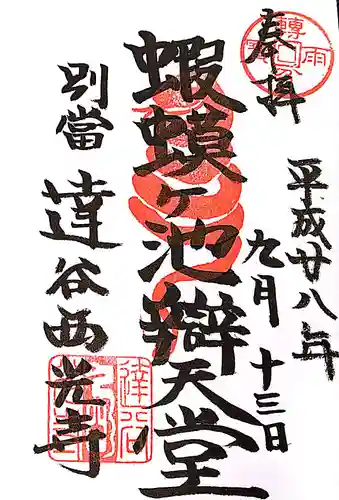 奉拝
平成廿八年
九月十三日
蝦蟆ヶ池辯天堂
別當
達谷西光寺